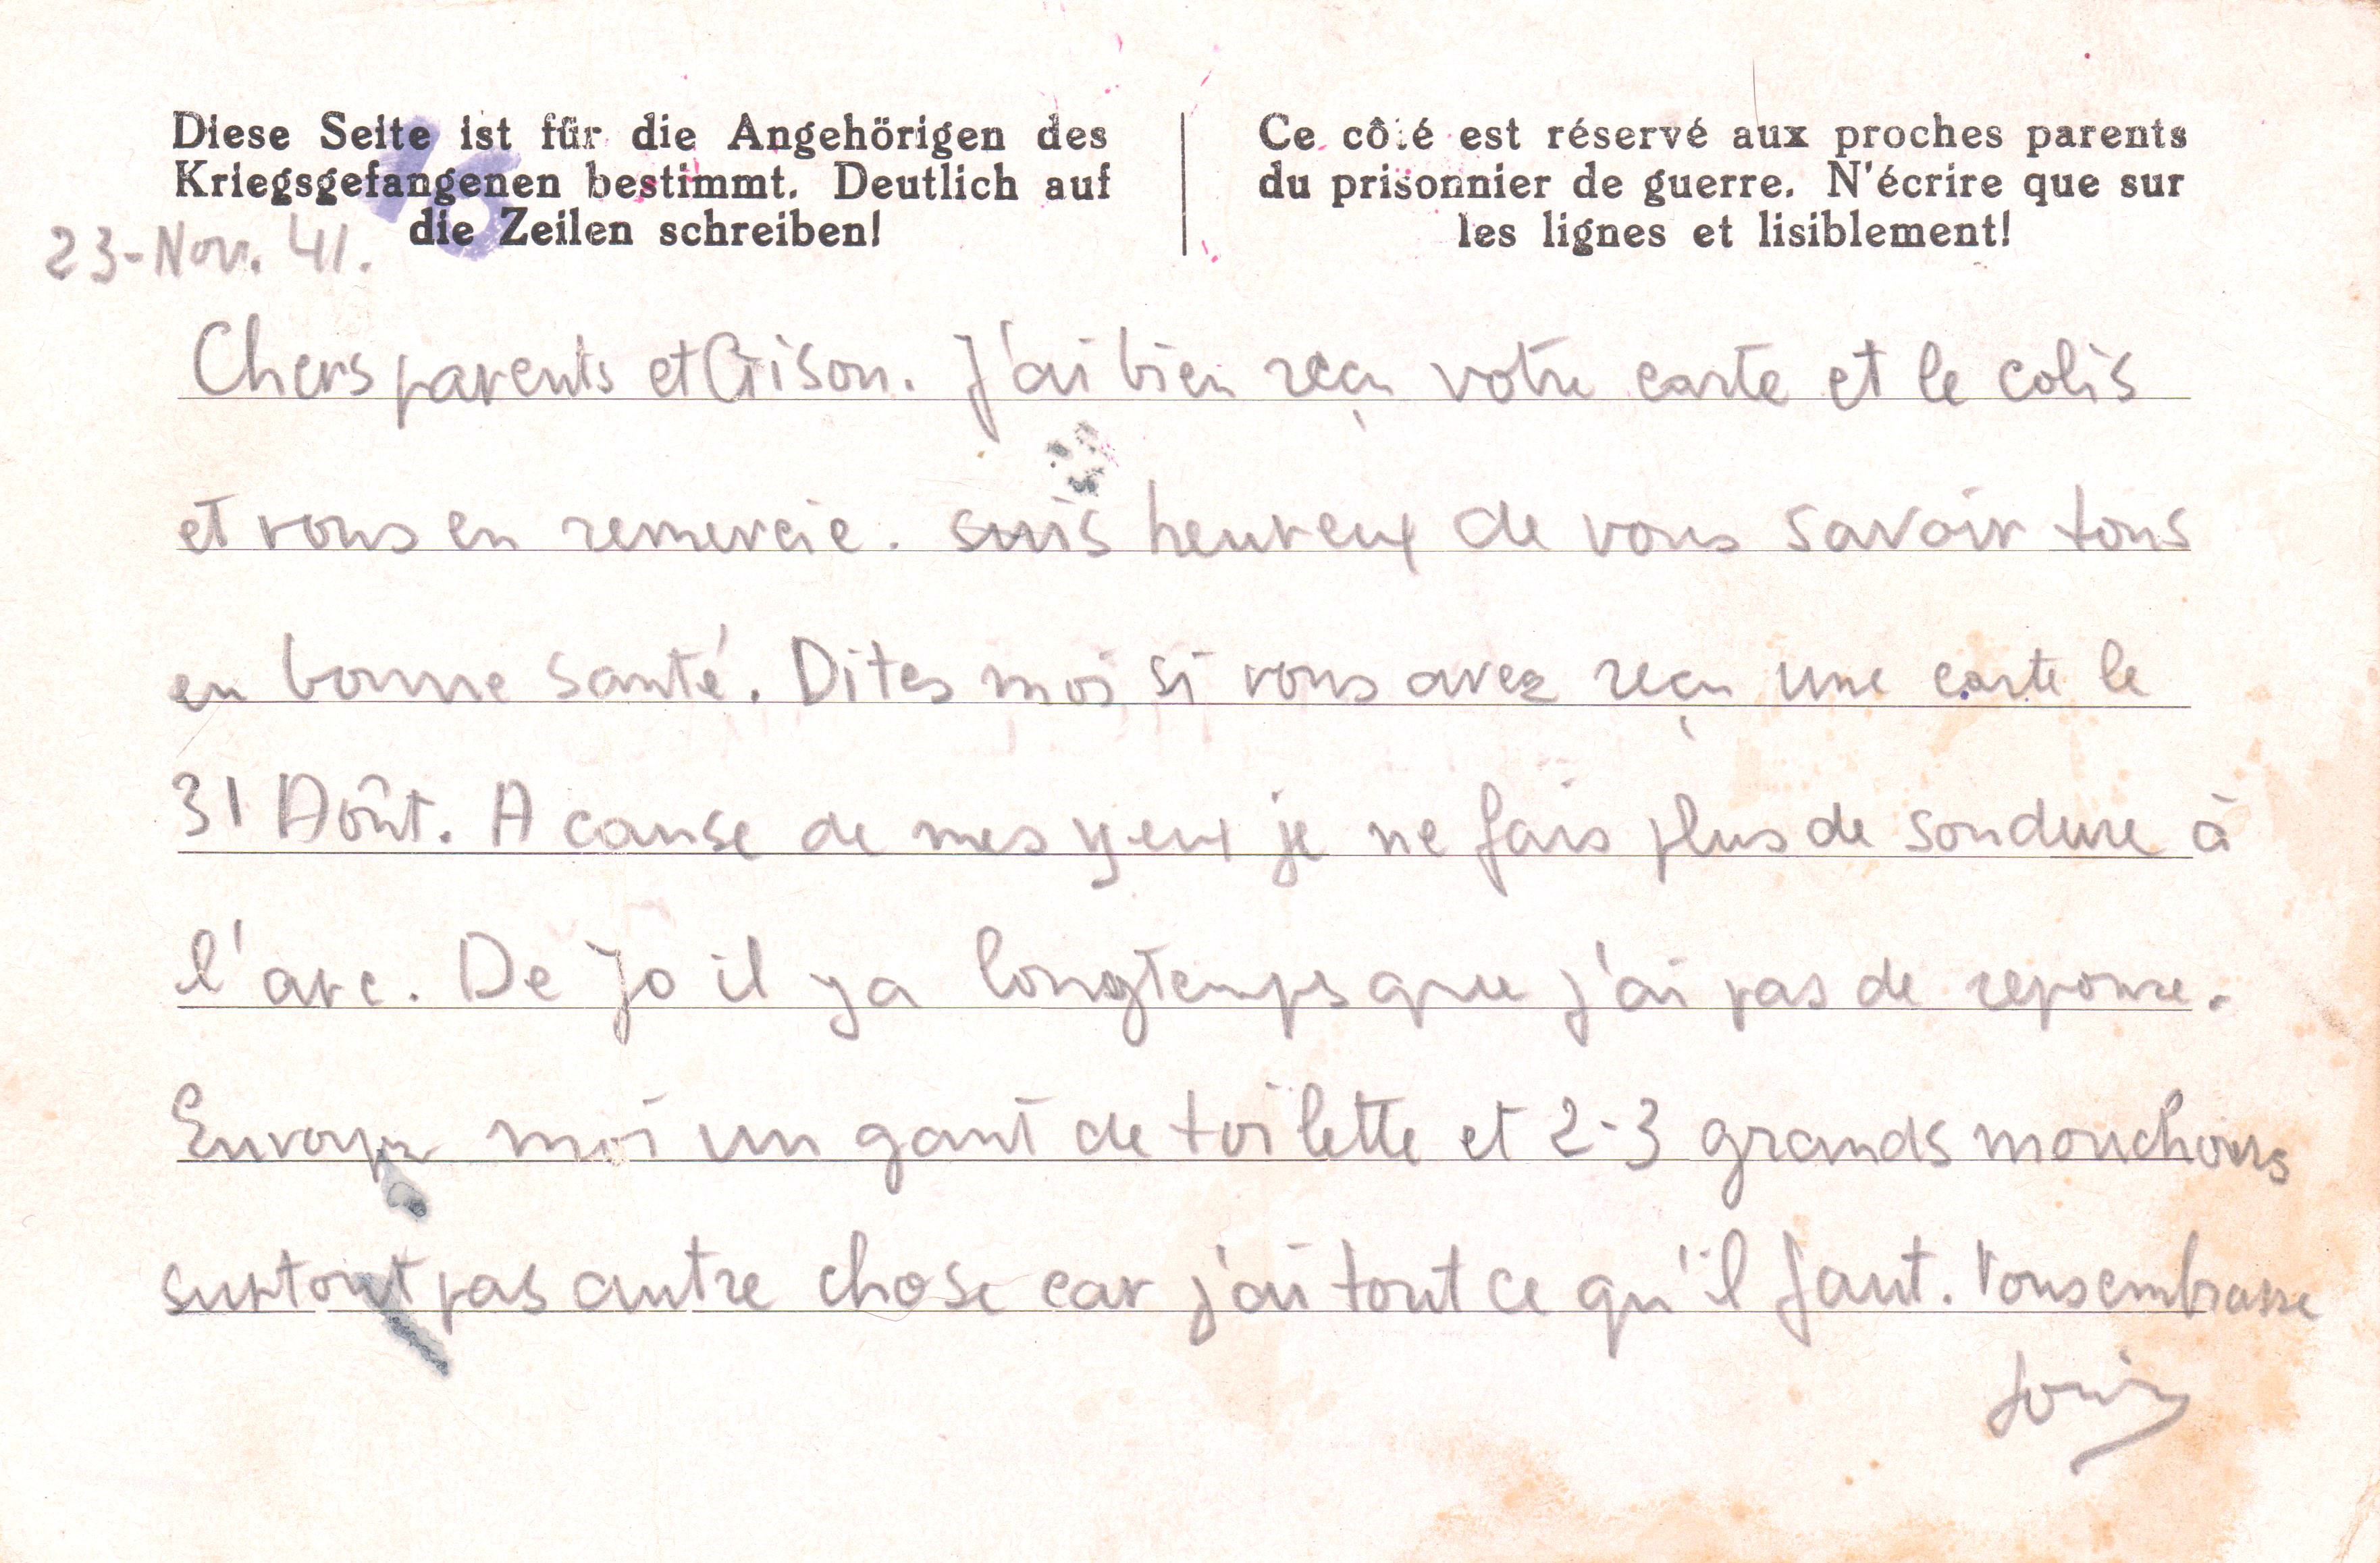 Diese Seite ist für die Angehörigen des
Kriegsgefangenen bestimmt. Deutlich auf
die Zeilen schreiben!
Ce côté est réservé aux proches parents
du prisonnier de guerre. N'écrire que sur
les lignes et lisiblement!
16
23-Nov. 41.
Chers parents et Gison. J'ai bien reçu votre carte et le colis
et vous en remercie. suis heureux de vous savoir tous
en bonne santé. Dites moi si vous avez reçu une carte le
31 Aôut. A cause de mes yeux je ne fais plus de soudure à
l'arc. De Jo il y a longtemps que j'ai pas de reponse.
Envoyez moi un gant de toilette et 2-3 grands mouchoirs
surtout pas autre chose car j'ai tout ce qu'il faut. Vous embrasse